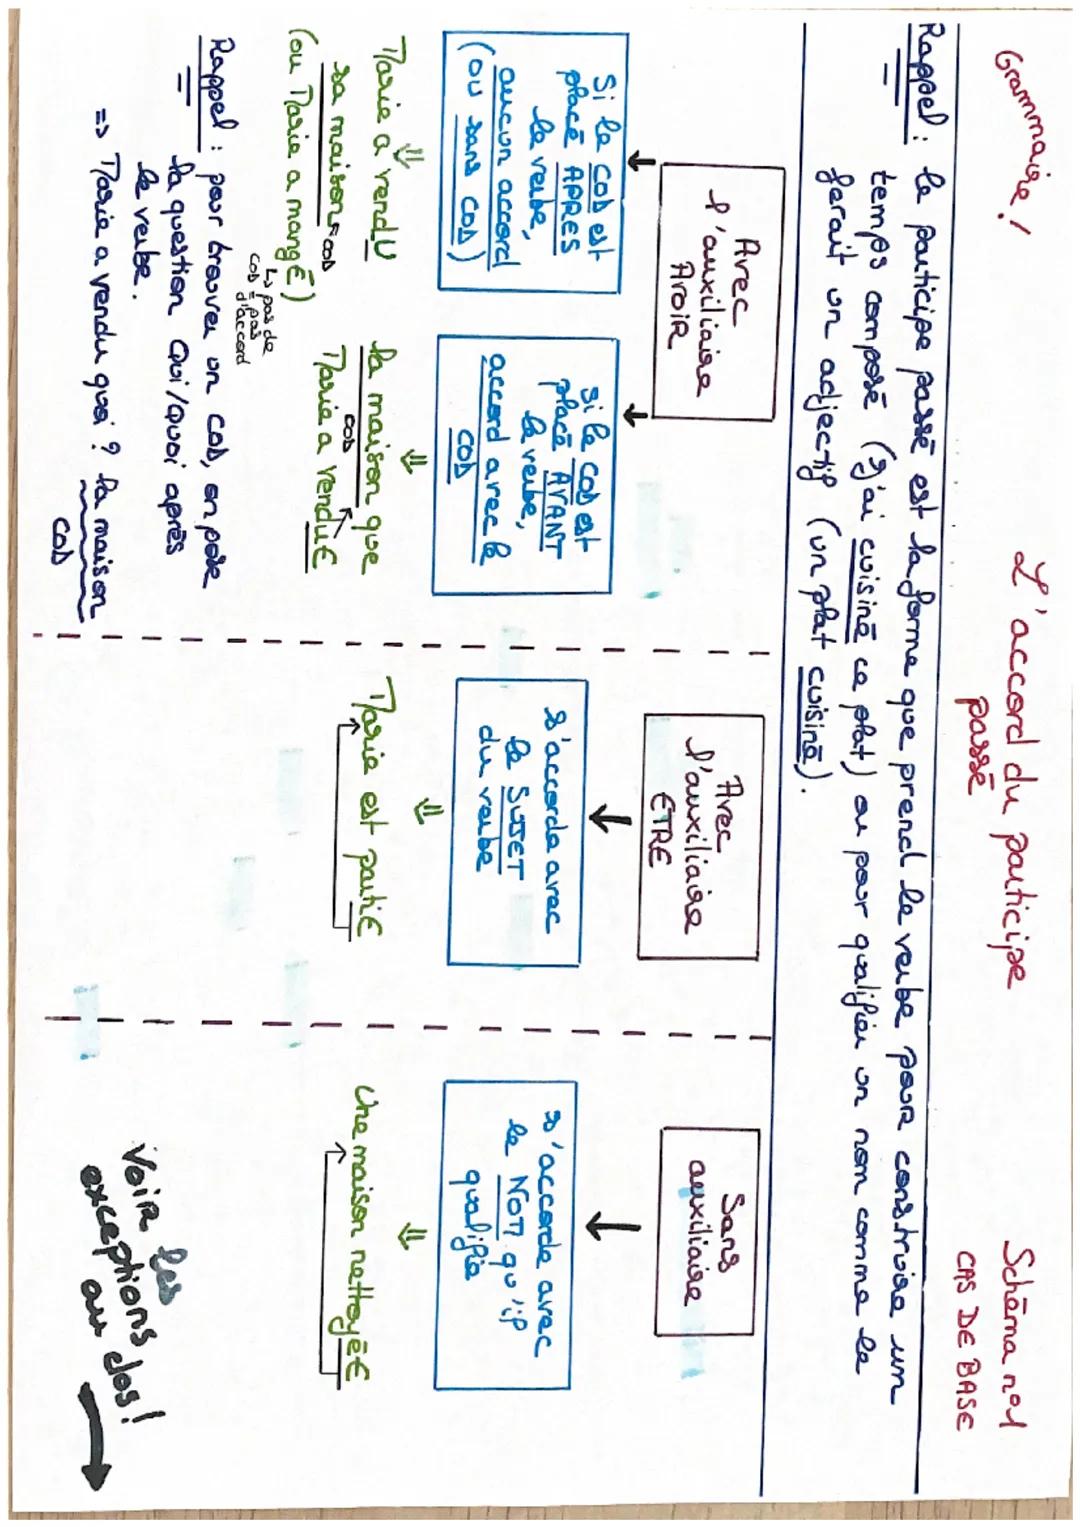 Grammaire !
L'accord du participe
passé
Schéma n°1
CAS DE BASE
Rappel : le participe passé est la forme que prend le verbe pour construire un
temps composé (j'ai cuisiné ce plat) ou pour qualifier un nom comme le
ferait un adjectif (un plat cuisiné).
Avec
l'auxiliaire
AVOIR
Si le COD est
placé APRES
le verbe,
aucun accord
(ou sans COD)
Marie a vendU
sa maison = COD
(ou Marie a mangÉ)
↳ pas de
COD = pas
d'accord
Si le COD est
placé AVANT
le verbe,
accord avec le
COD
la maison que
COD
Marie a venduE
Rappel : pour trouver un COD, on pose
la question Qui/Quoi après
le verbe.
=> Marie a vendu quoi ? la maison
COD
Avec
l'auxiliaire
ETRE
s'accorde avec
le SUJET
du verbe
Marie est partiE
Sans
auxiliaire
s'accorde avec
le NOM qu'il
qualifie
Une maison nettoyéE
Voir les
exceptions
au dos !